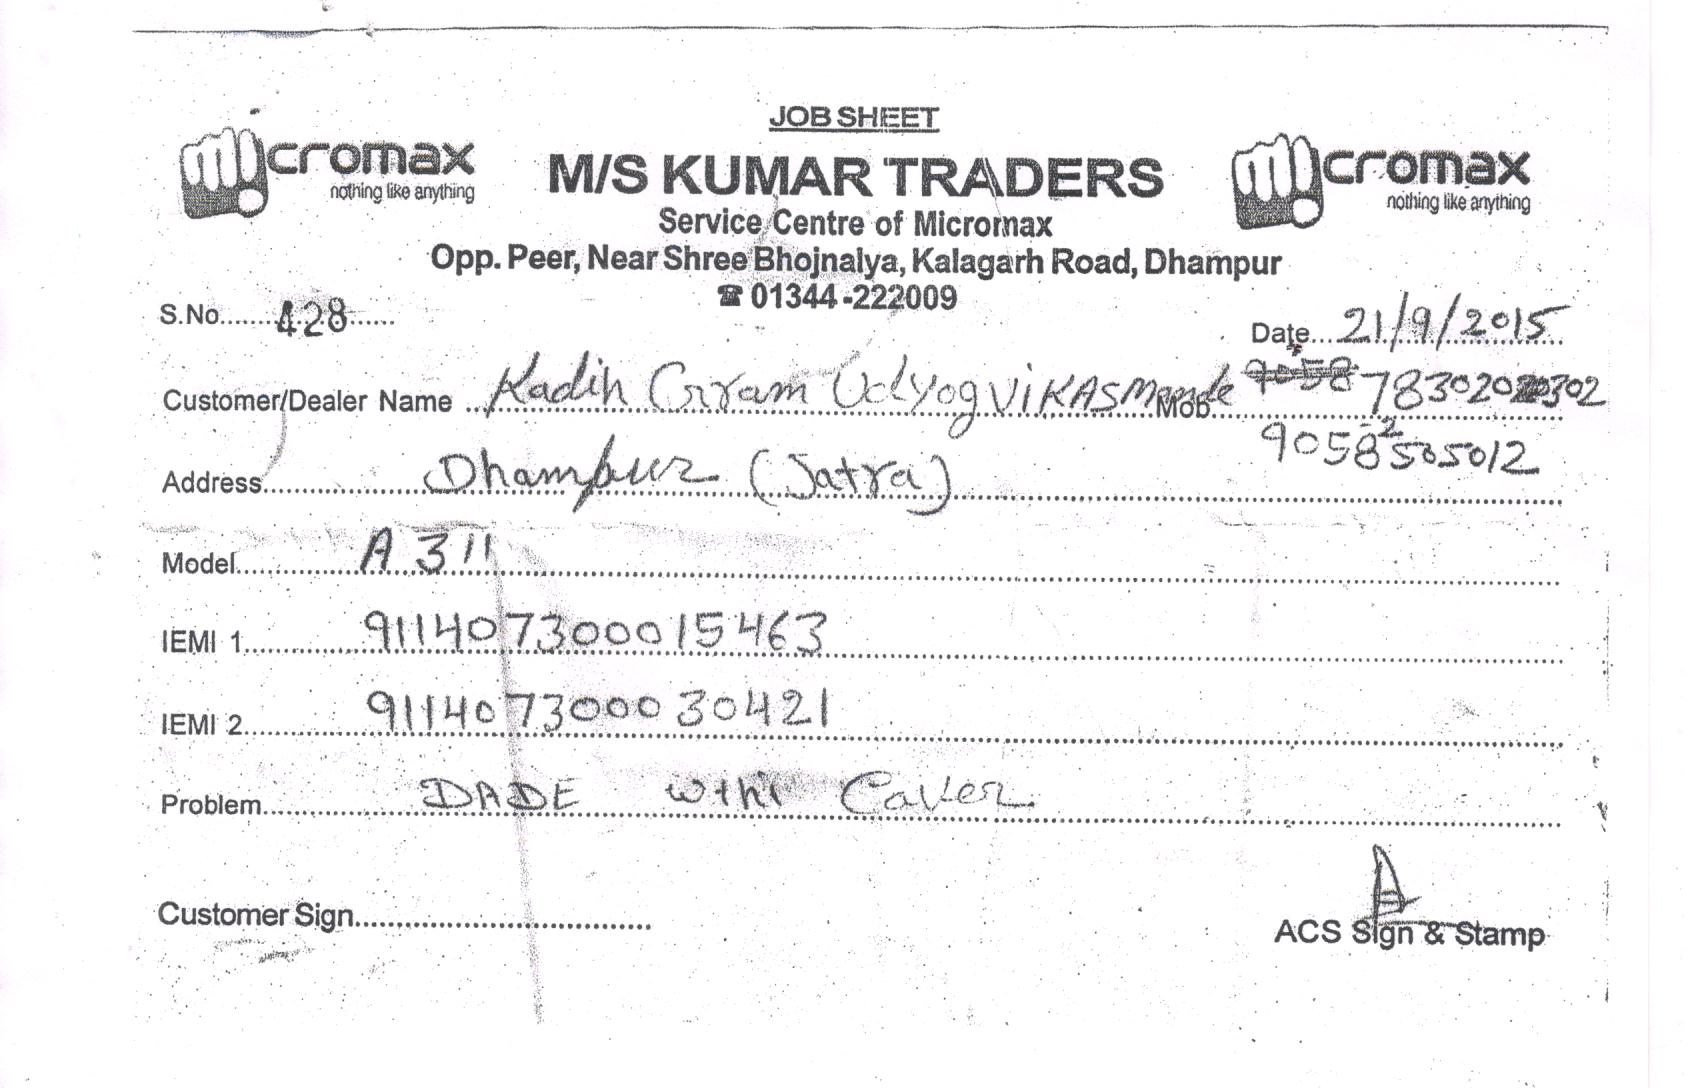 JOB SHEET
micromax
nothing like anything
M/S KUMAR TRADERS
micromax
nothing like anything
Service Centre of Micromax
Opp. Peer, Near Shree Bhojnalya, Kalagarh Road, Dhampur
☎ 01344-222009
S.No. 428
Date 21/9/2015
Customer/Dealer Name Kadih Gram Udyog ViKAS Mob. 9058
Address Dhampur (Jatra)
Model A 311
IEMI 1 911407300015463
IEMI 2 911407300030421
Problem DADE wthi Caver
Customer Sign
ACS Sign & Stamp